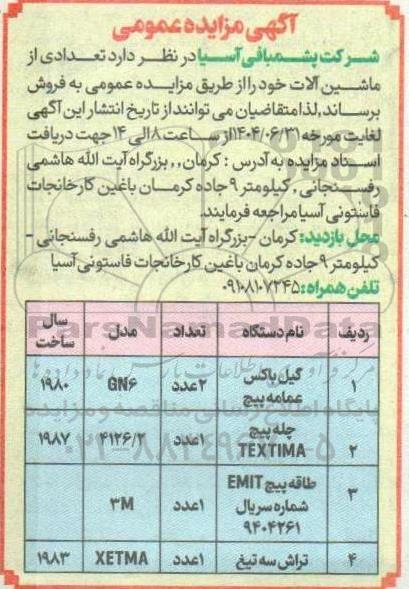 آگهی مزایده عمومی
شرکت پشمبافی آسیا در نظر دارد تعدادی از
ماشین آلات خود را از طریق مزایده عمومی به فروش
برساند, لذا متقاضیان می توانند از تاریخ انتشار این آگهی
لغایت مورخه ۱۴۰۴/۰۶/۳۱ از ساعت ۸ الی ۱۴ جهت دریافت
اسناد مزایده به آدرس : کرمان ,, بزرگراه آیت الله هاشمی
رفسنجانی , کیلومتر ۹ جاده کرمان باغین کارخانجات
فاستونی آسیا مراجعه فرمایند.
محل بازدید: کرمان - بزرگراه آیت الله هاشمی رفسنجانی -
کیلومتر ۹ جاده کرمان باغین کارخانجات فاستونی آسیا
تلفن همراه: ۰۹۱۰۸۱۰۷۲۴۵
ردیف نام دستگاه تعداد مدل سال ساخت
۱ گیل باکس عمامه پیچ ۲عدد GN۶ ۱۹۸۰
۲ چله پیچ TEXTIMA ۱عدد ۴۱۲۶/۲ ۱۹۸۷
۳ طاقه پیچ EMIT شماره سریال ۹۴۰۴۲۶۱ ۱عدد ۳M
۴ تراش سه تیغ ۱عدد XETMA ۱۹۸۳
ParsNamadData
پایگاه اطلاع رسانی مناقصه و مزایده